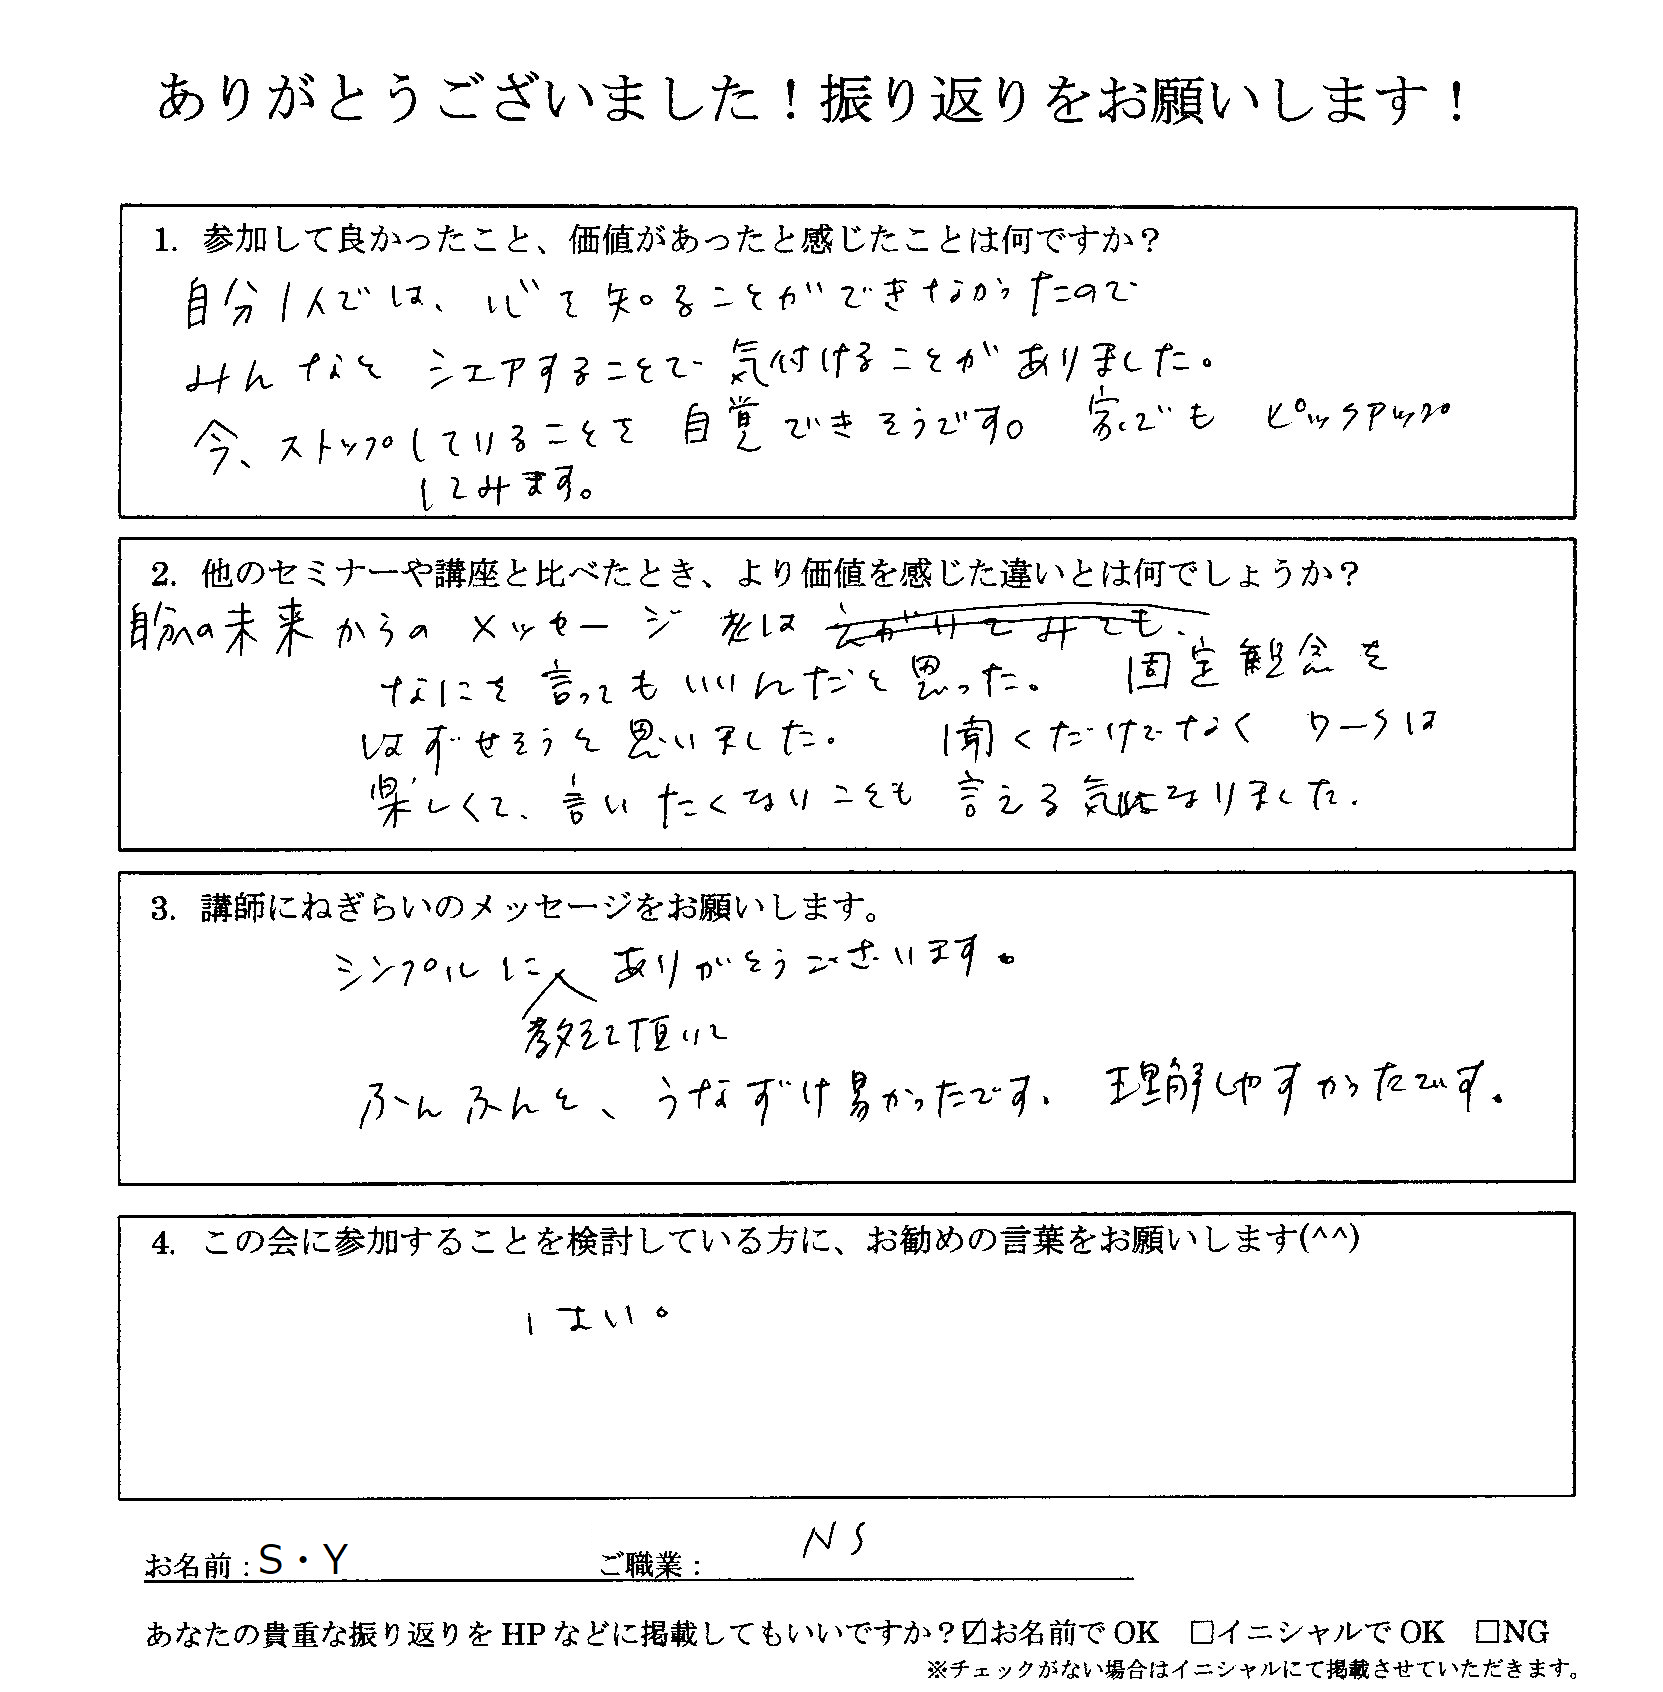 ありがとうございました！振り返りをお願いします！
1. 参加して良かったこと、価値があったと感じたことは何ですか？
自分1人では、心を知ることができなかったので
みんなと シェアすることで 気付けることがありました。
今、ストップしていることを 自覚できそうです。 家でも ピックアップ
してみます。
2. 他のセミナーや講座と比べたとき、より価値を感じた違いとは何でしょうか？
自分への未来からの メッセージ
なにを 言ってもいいんだと思った。 固定観念を
はずせそうと思いました。 聞くだけでなく ワークは
楽しくて、言いたくないことも 言える気になりました.
3. 講師にねぎらいのメッセージをお願いします。
シンプルに ありがとうございます。
教えて頂いて
ふんふんと、うなずけ易かったです. 理解しやすかったです.
4. この会に参加することを検討している方に、お勧めの言葉をお願いします(^^)
はい。
お名前：S・Y ご職業： NS
あなたの貴重な振り返りを HP などに掲載してもいいですか？☑お名前で OK □イニシャルで OK □NG
※チェックがない場合はイニシャルにて掲載させていただきます。